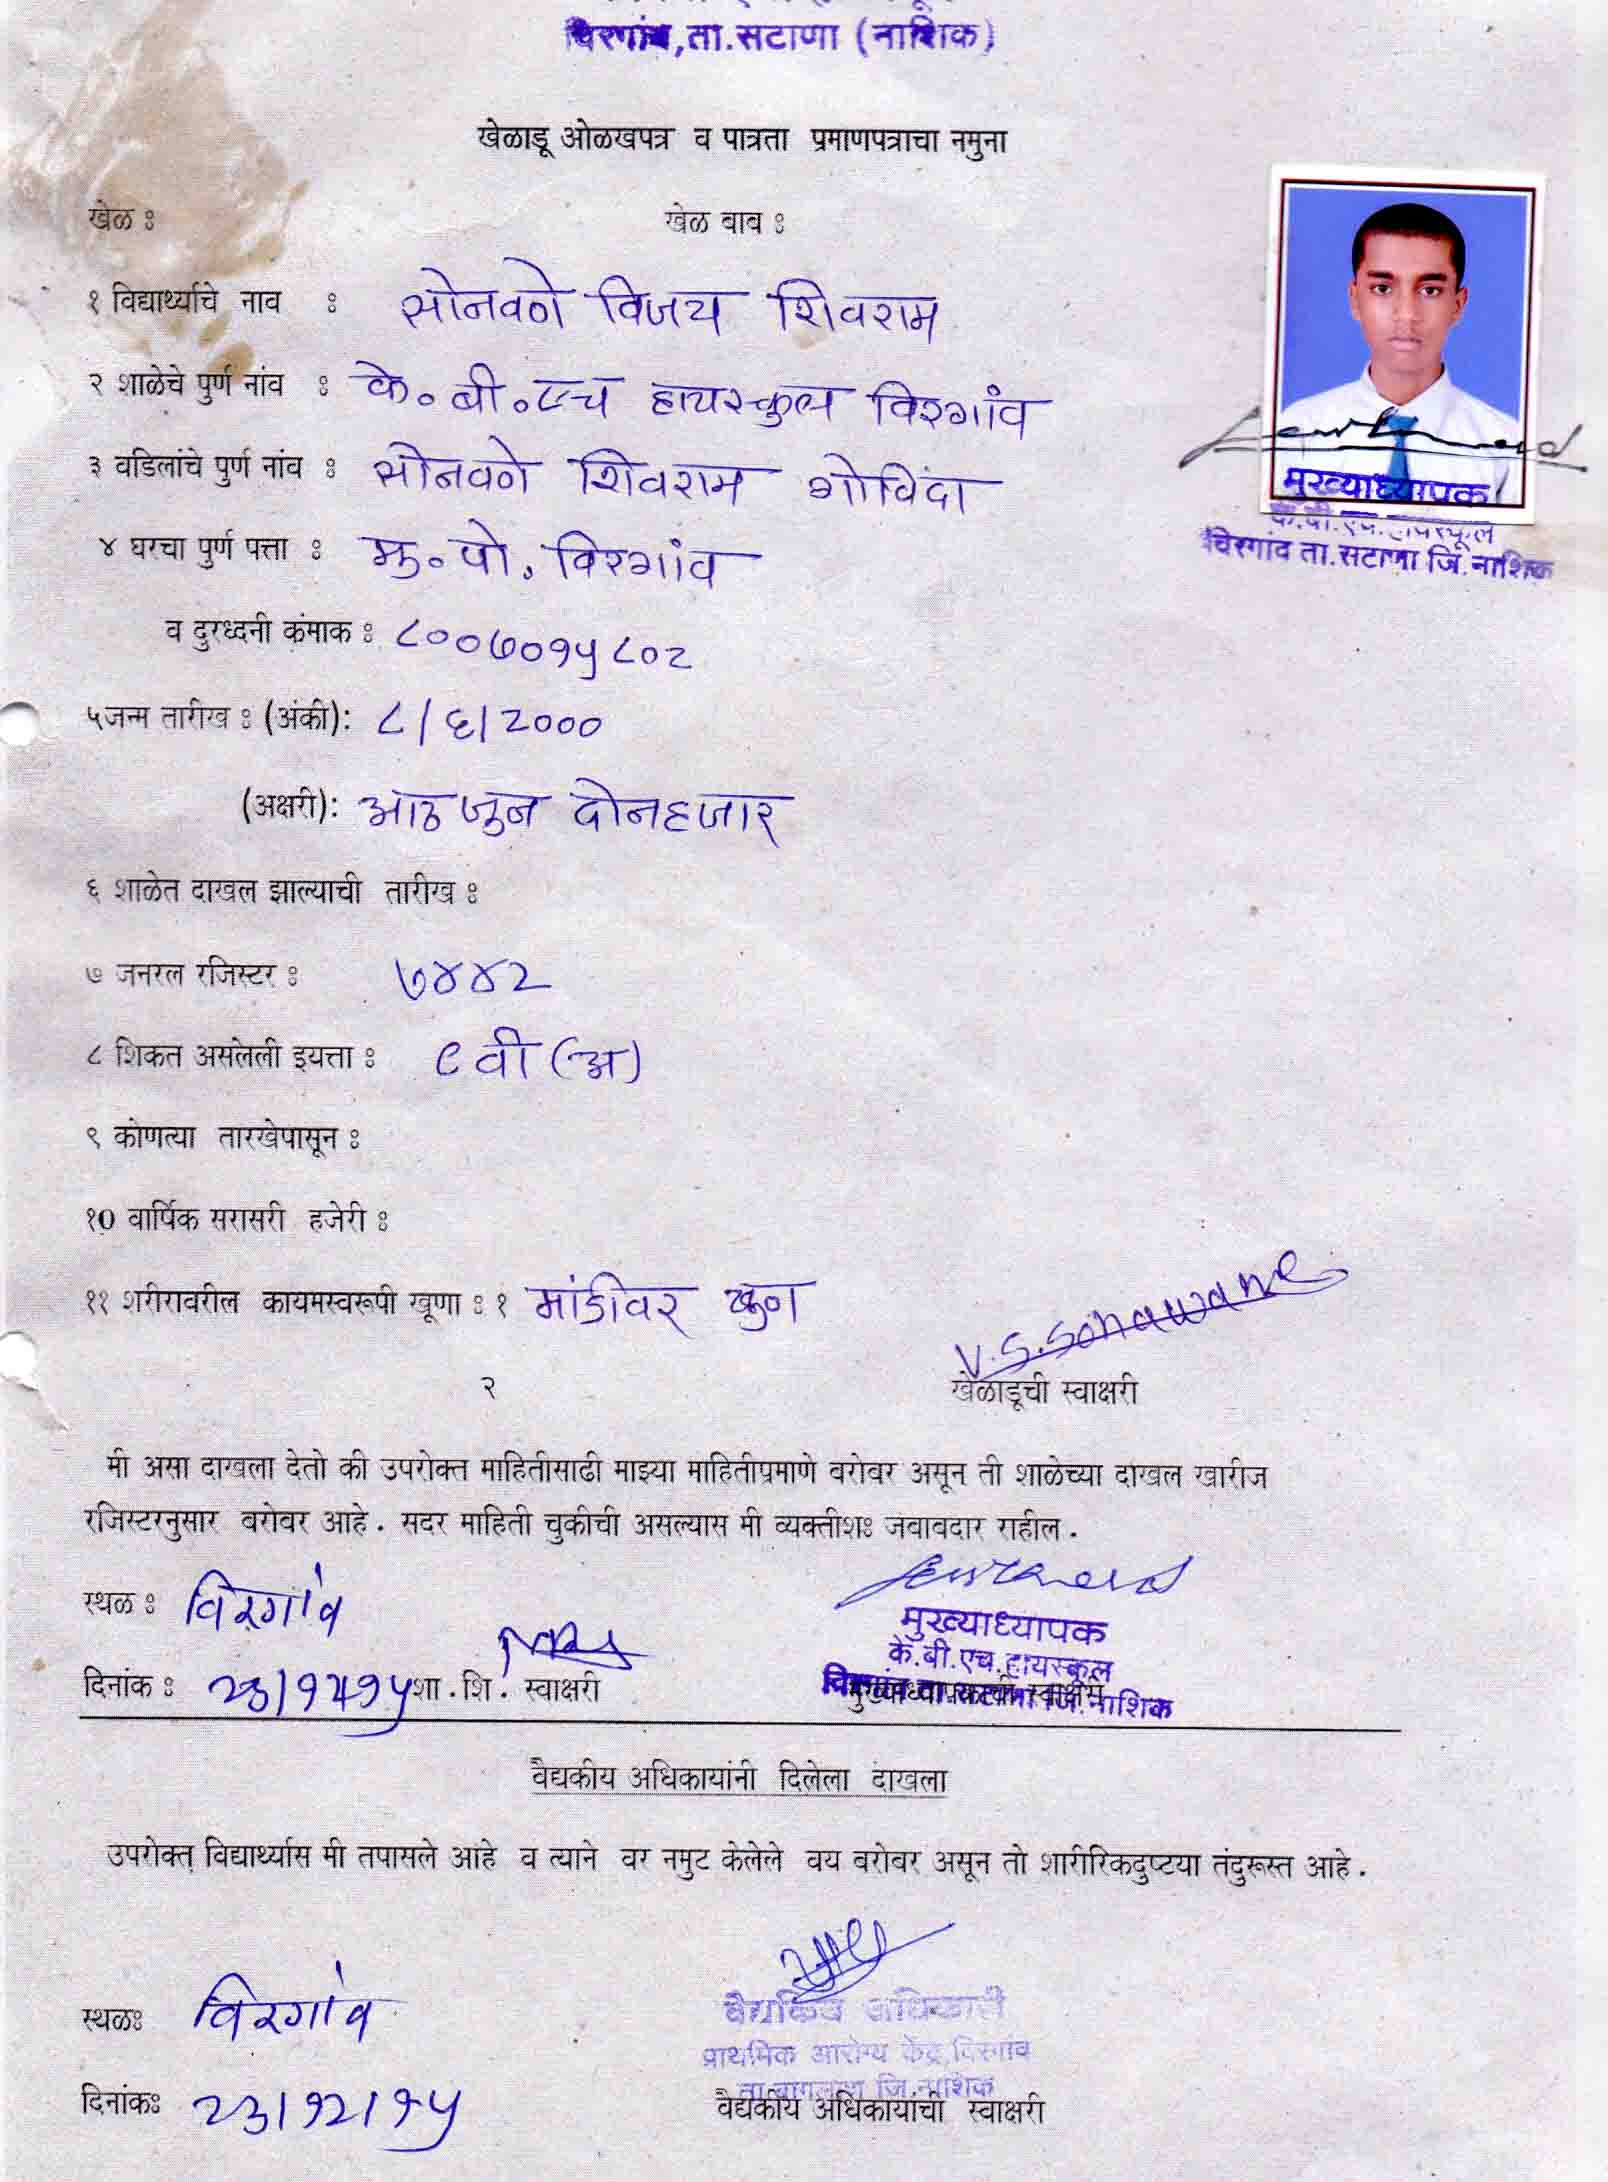 विरगांव,ता.सटाणा (नाशिक)
खेळाडू ओळखपत्र व पात्रता प्रमाणपत्राचा नमुना
खेळ : खेळ बाब :
१ विद्यार्थ्याचे नाव : सोनवणे विजय शिवराम
२ शाळेचे पुर्ण नांव : के.बी.एच हायस्कुल विरगांव
३ वडिलांचे पुर्ण नांव : सोनवणे शिवराम गोविंदा
मुख्याध्यापक
के.बी.एच.हायस्कूल
विरगांव ता.सटाणा जि.नाशिक
४ घरचा पुर्ण पत्ता : मु.पो. विरगांव
व दुरध्दनी कंमाक : ८००७०१५८०२
५जन्म तारीख : (अंकी): ८/६/२०००
(अक्षरी): आठ जुन दोनहजार
६ शाळेत दाखल झाल्याची तारीख :
७ जनरल रजिस्टर : ७४४२
८ शिकत असलेली इयत्ता : ९ वी (अ)
९ कोणत्या तारखेपासून :
१0 वार्षिक सरासरी हजेरी :
११ शरीरावरील कायमस्वरूपी खूणा : १ मांडीवर खुण
V.S.Sonawane
२
खेळाडूची स्वाक्षरी
मी असा दाखला देतो की उपरोक्त माहितीसाठी माझ्या माहितीप्रमाणे बरोबर असून ती शाळेच्या दाखल खारीज
रजिस्टरनुसार बरोबर आहे. सदर माहिती चुकीची असल्यास मी व्यक्तीशः जवाबदार राहील.
स्थळ : विरगांव
मुख्याध्यापक
के.बी.एच.हायस्कूल
दिनांक : २३/१२/१५ शा.शि. स्वाक्षरी
विरगांव ता.सटाणा जि.नाशिक
वैद्यकीय अधिकायांनी दिलेला दाखला
उपरोक्त विद्यार्थ्यास मी तपासले आहे व त्याने वर नमुट केलेले वय बरोबर असून तो शारीरिकदुष्टया तंदुरूस्त आहे.
स्थळः विरगांव
वैद्यकिय अधिकारी
प्राथमिक आरोग्य केंद्र,विरगांव
ता.बागलाण जि.नाशिक
दिनांकः २३/१२/१५ वैद्यकीय अधिकायांची स्वाक्षरी